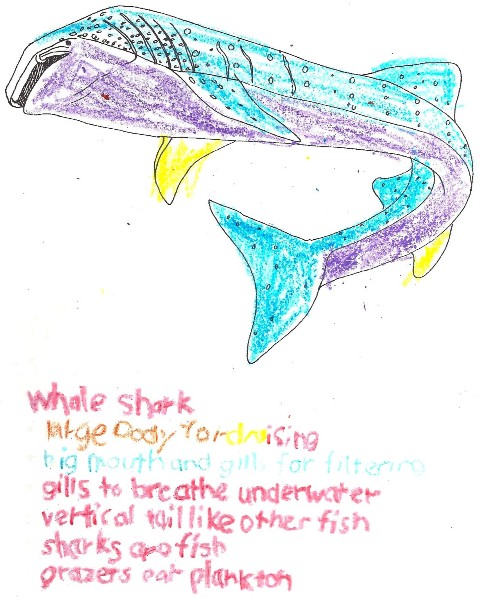 whale shark
large body for cruising
big mouth and gills for filtering
gills to breathe underwater
vertical tail like other fish
sharks are fish
grazers eat plankton